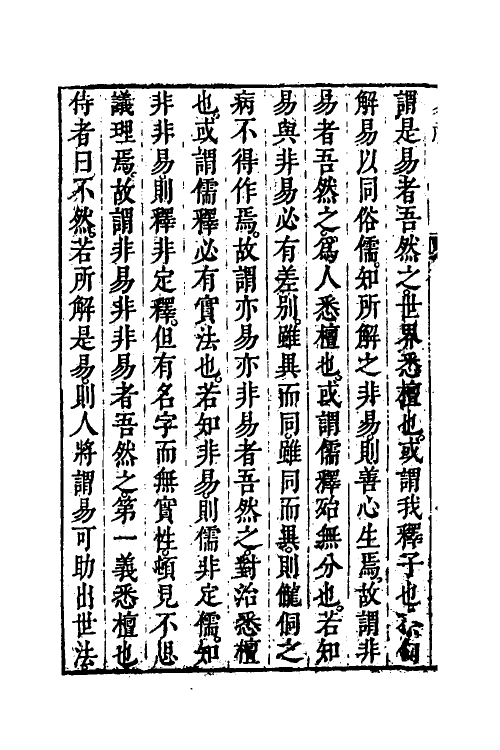 謂是易者吾然之世界悉檀也或謂我釋子也
解易以同俗儒知所解之非易則善心生焉故謂非
易者吾然之為人悉檀也或謂儒釋殆無分也若知
易與非易必有差別雖異而同雖同而異則儱侗之
病不得作焉故謂亦易亦非易者吾然之對治悉檀
也或謂儒釋必有實法也若知非易則儒非定儒知
非非易則釋非定釋但有名字而無實性頓見不思
議理焉故謂非易非非易者吾然之第一義悉檀也
侍者曰不然若所解是易則人將謂易可助出世法